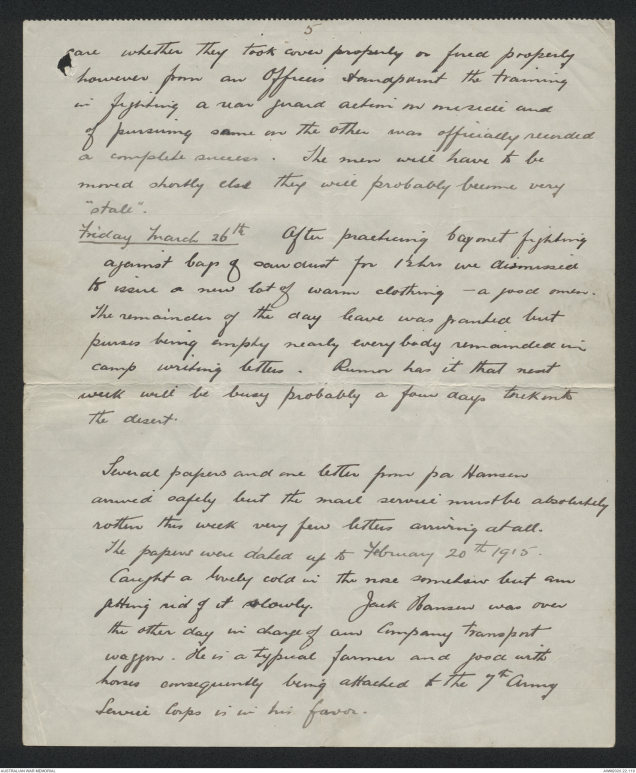 5
care whether they took cover properly or fired properly
however from an Officers standpoint the training
in fighting a rear guard action on one side and
of pursuing same on the other was officially recorded
a complete success. The men will have to be
moved shortly else they will probably become very
"stale".
Friday March 26th After practicing bayonet fighting
against bags of sawdust for 1½hrs we dismissed
to issue a new lot of warm clothing – a good omen.
The remainder of the day leave was granted but
purses being empty nearly everybody remainded in
camp writing letters. Rumor has it that next
week will be busy probably a four days trek into
the desert.
Several papers and one letter from pa Hansen
arrived safely but the mail service must be absolutely
rotten this week very few letters arriving at all.
The papers were dated up to February 20th 1915.
Caught a lovely cold in the nose somehow but am
getting rid of it slowly. Jack Hansen was over
the other day in charge of our Company transport
waggon. He is a typical farmer and good with
horses consequently being attached to the 7th Army
Service Corps is in his favor.
AUSTRALIAN WAR MEMORIAL